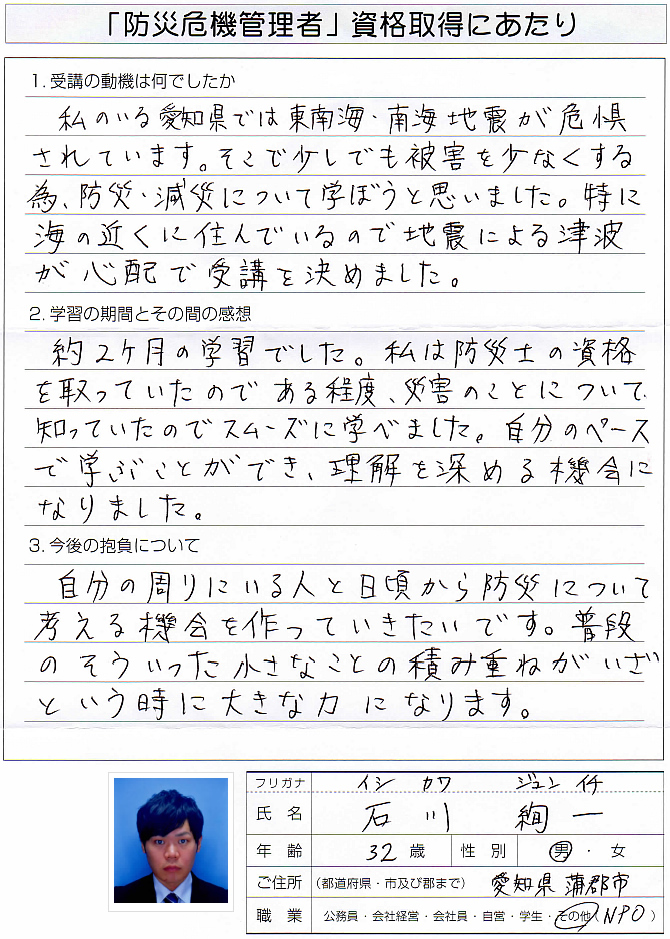 「防災危機管理者」資格取得にあたり
1.受講の動機は何でしたか
私のいる愛知県では東南海・南海地震が危惧
されています。そこで少しでも被害を少なくする
為、防災・減災について学ぼうと思いました。特に
海の近くに住んでいるので地震による津波
が心配で受講を決めました。
2.学習の期間とその間の感想
約2ケ月の学習でした。私は防災士の資格
を取っていたのである程度、災害のことについて
知っていたのでスムーズに学べました。自分のペース
で学ぶことができ、理解を深める機会に
なりました。
3.今後の抱負について
自分の周りにいる人と日頃から防災について
考える機会を作っていきたいです。普段
のそういった小さなことの積み重ねがいざ
という時に大きな力になります。
フリガナ イシ カワ ジュン イチ
氏名 石川 絢一
年齢 32歳 性別 男・女
ご住所 (都道府県・市及び郡まで) 愛知県蒲郡市
職業 公務員・会社経営・会社員・自営・学生・その他(NPO)